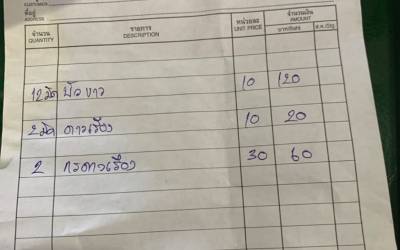 ที่อยู่
ADDRESS
จำนวน รายการ หน่วยละ จำนวนเงิน
QUANTITY DESCRIPTION UNIT PRICE AMOUNT
12 มัด บัว ขาว 10 120
2 มัด ดาวเรือง 10 20
2 ดาวเรือง 30 60